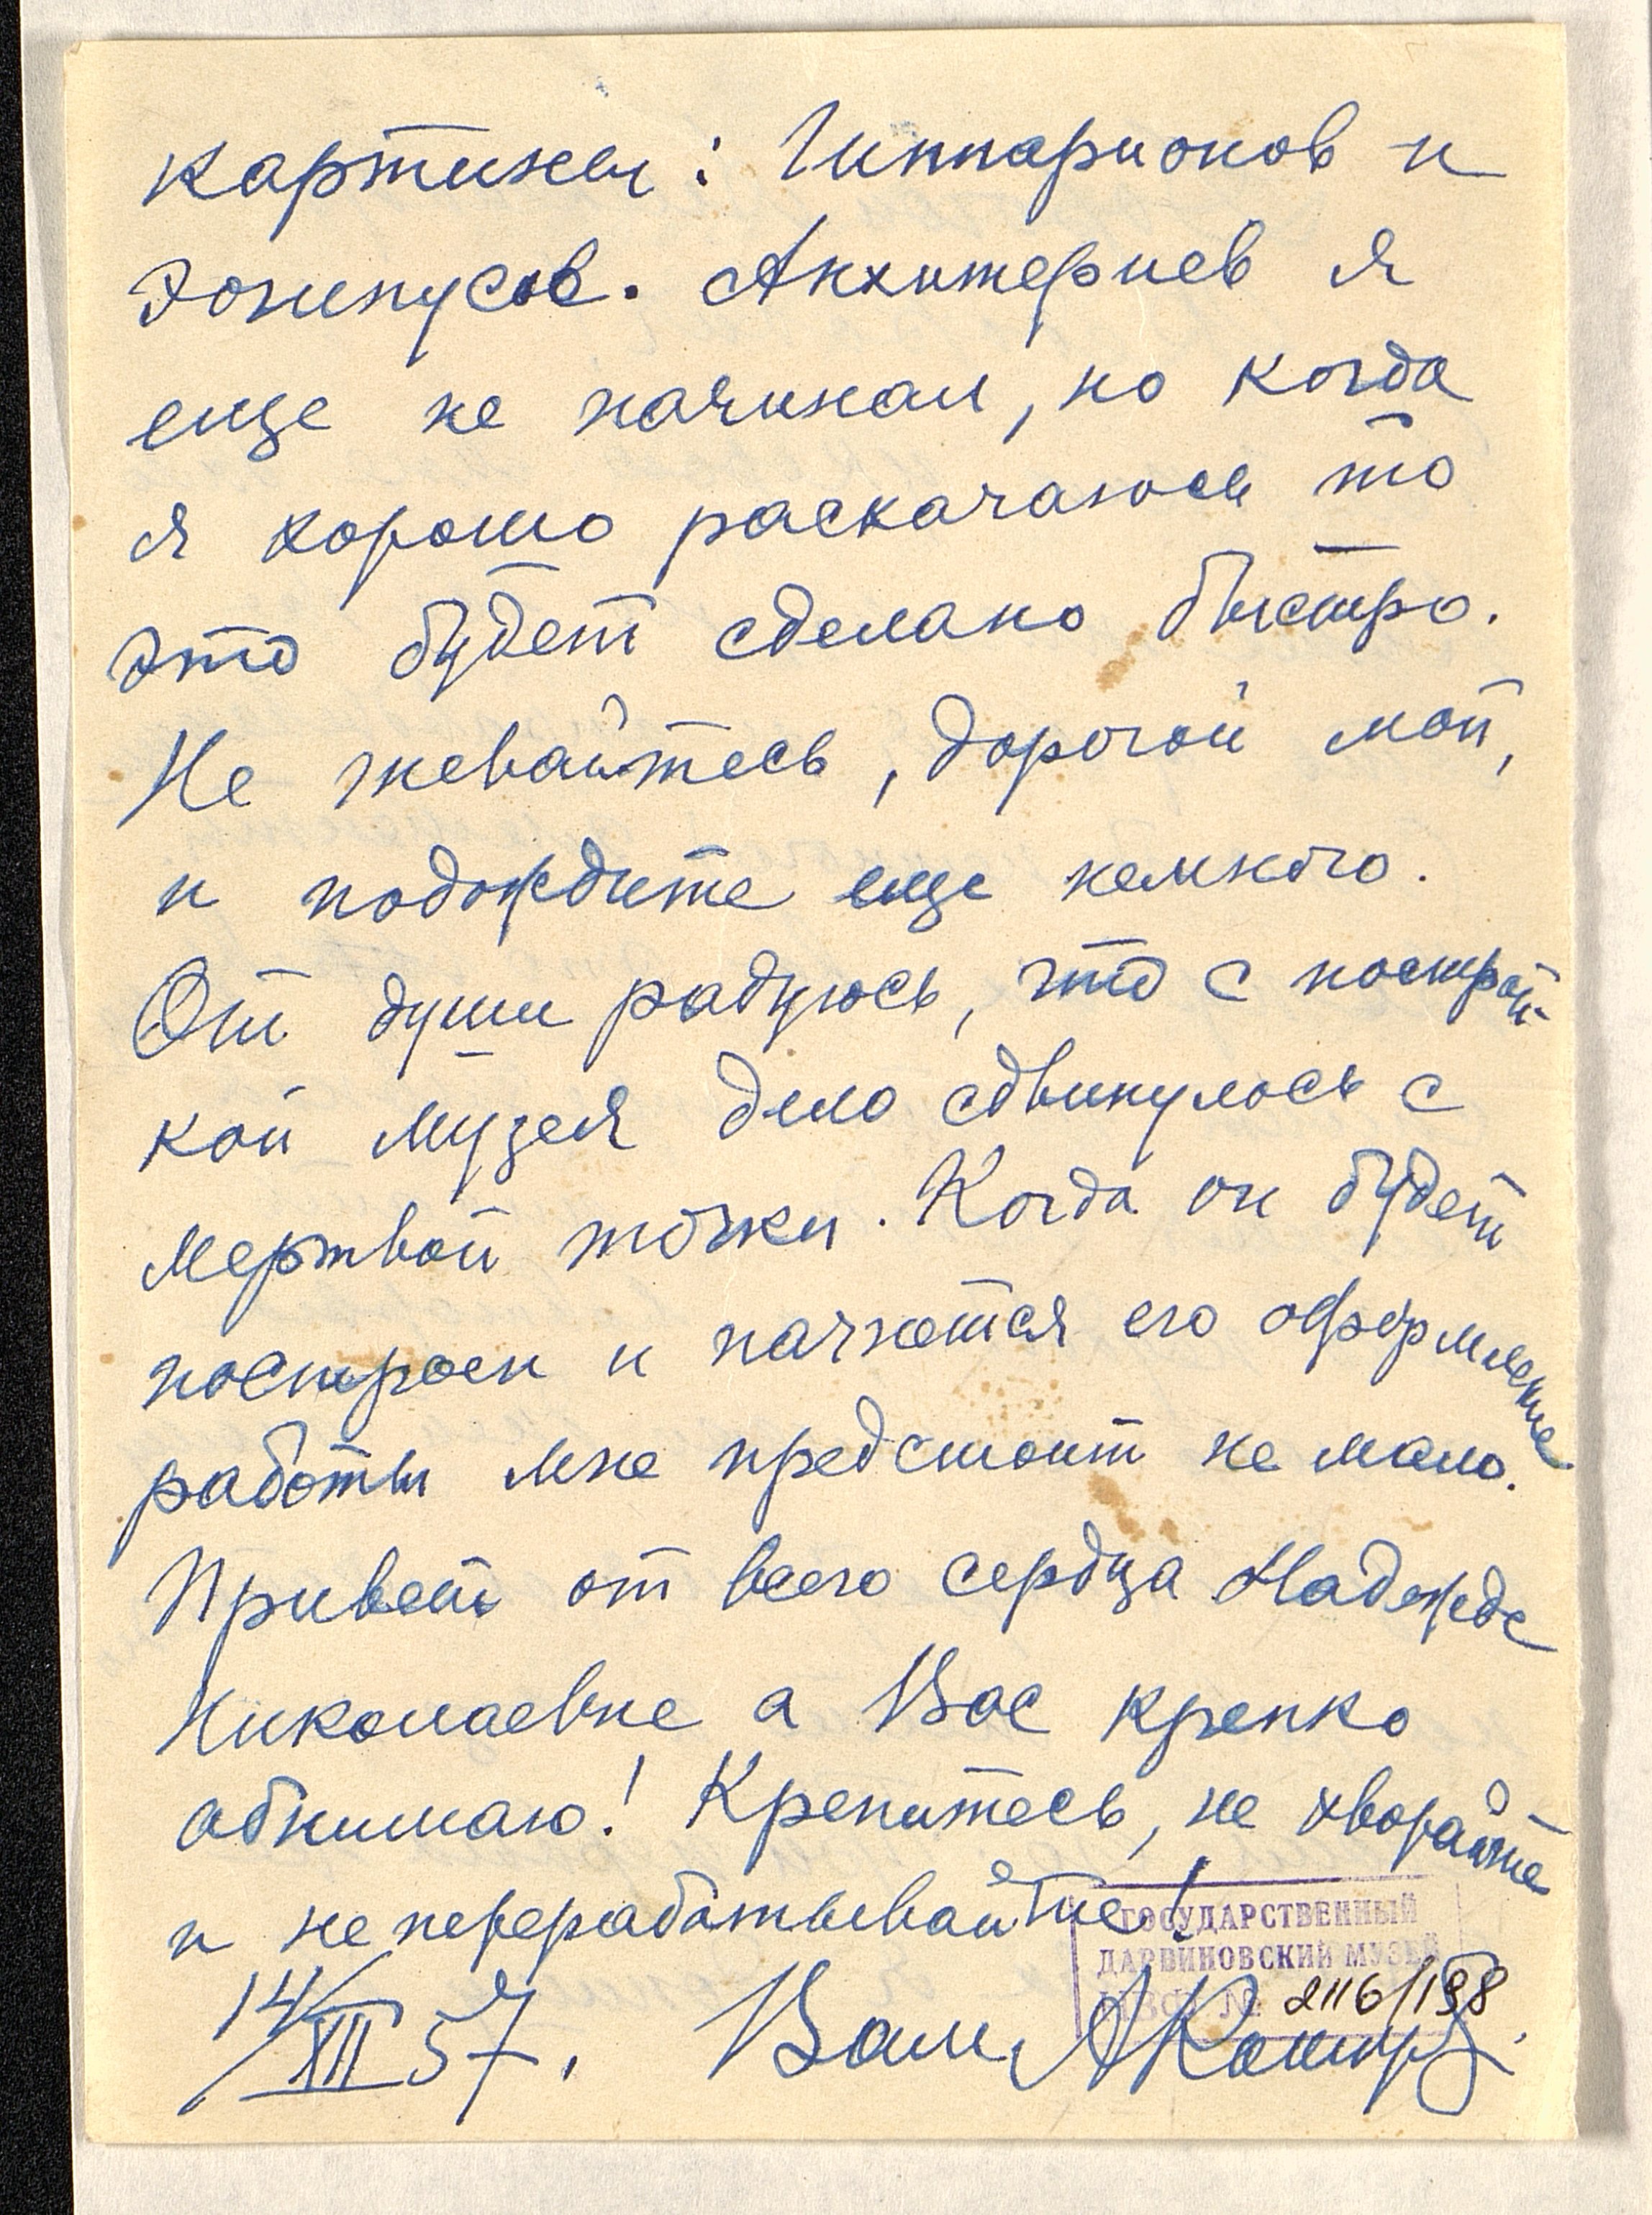 картины: Гиппарионов и
Эогипусов. Анхитериев я
еще не начинал, но когда
я хорошо раскачаюсь то
это будет сделано быстро.
Не гневайтесь, дорогой мой,
и подождите еще немного.
От души радуюсь, что с построй-
кой музея дело сдвинулось с
мертвой точки. Когда он будет
построен и начнется его оформление
работы мне предстоит не мало.
Привет от всего сердца Надежде
Николаевне а Вас крепко
обнимаю! Крепитесь, не хворайте
и не перерабатывайте!
ГОСУДАРСТВЕННЫЙ
ДАРВИНОВСКИЙ МУЗЕЙ
№ 2116/198
14/XII 57. Ваш